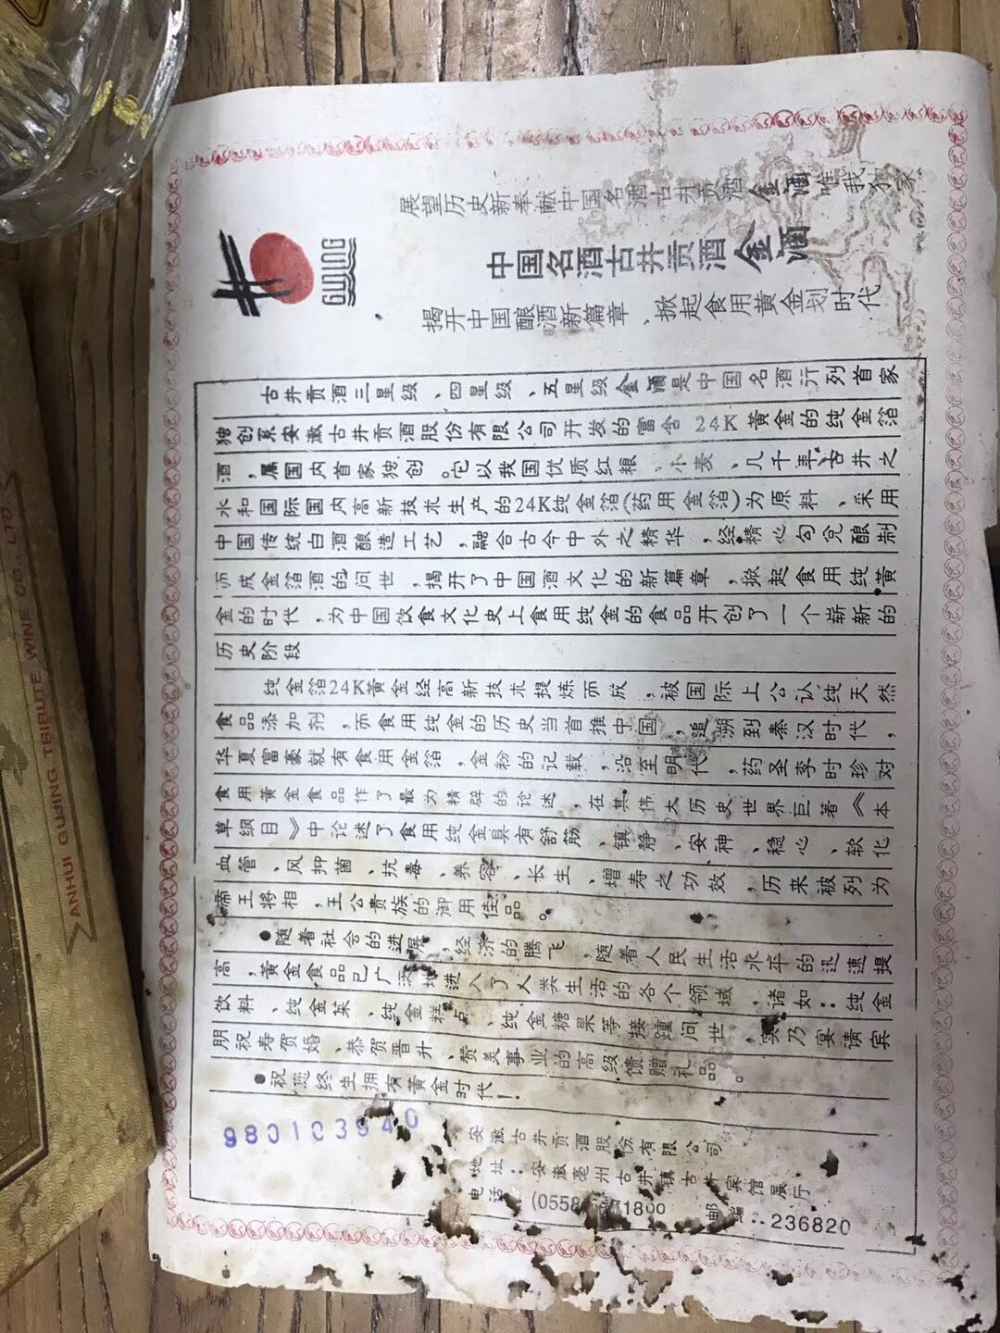 GUJING
展望历史新奉献中国名酒古井贡酒金酒惟我独家
中国名酒古井贡酒金酒
揭开中国酿酒新篇章、掀起食用黄金划时代
古井贡酒三星级、四星级、五星级金酒是中国名酒行列首家
独创系安徽古井贡酒股份有限公司开发的富含24K黄金的纯金箔
酒，属国内首家独创。它以我国优质红粮、小麦、几千年古井之
水和国际国内高新技术生产的24K纯金箔(药用金箔)为原料、采用
中国传统白酒酿造工艺，融合古今中外之精华，经精心勾兑酿制
而成金箔酒的问世，揭开了中国酒文化的新篇章，掀起食用纯黄
金的时代，为中国饮食文化史上食用纯金的食品开创了一个崭新的
历史阶段
纯金箔24K黄金经高新技术提炼而成，被国际上公认纯天然
食品添加剂，而食用纯金的历史当首推中国，追溯到秦汉时代，
华夏富豪就有食用金箔，金粉的记载，沿至明代，药圣李时珍对
食用黄金食品作了最为精辟的论述，在其伟大历史世界巨著《本
草纲目》中论述了食用纯金具有舒筋、镇静、安神、稳心、软化
血管、风抑菌、抗毒、养容、长生、增寿之功效，历来被列为
帝王将相，王公贵族的御用佳品。
●随着社会的进展，经济的腾飞，随着人民生活水平的迅速提
高，黄金食品已广泛地进入了人类生活的各个领域，诸如：纯金
饮料、纯金菜、纯金糕点、纯金糖果等接踵问世，实乃宴请宾
朋祝寿贺婚、恭贺晋升、赞美事业的高级馈赠礼品。
●祝您终生拥有黄金时代！
980103540
安徽古井贡酒股份有限公司
地址：安徽亳州古井镇古井宾馆展厅
电话 (0558 1800 邮 236820
ANHUI GUJING TRIBUTE WINE CO., LTD